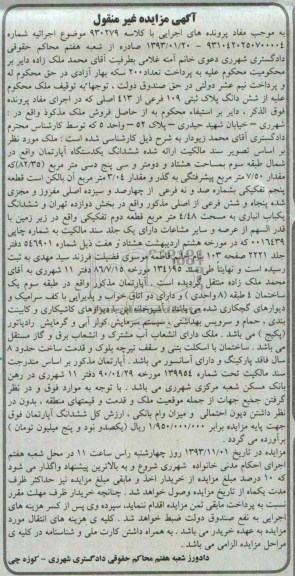 آگهی مزایده غیر منقول
به موجب مفاد پرونده های اجرایی با کلاسه ۹۳۰۲۷۹ موضوع اجرائیه شماره
۹۳۱۰۴۲۰۲۵۰۷۰۰۰۰۴ – ۱۳۹۳/۰۱/۲۰ صادره از شعبه هفتم محاکم حقوقی
دادگستری شهرری دعوی خانم آمنه غلامی بطرفیت آقای محمد ملک زاده دایر بر
محکومیت محکوم علیه به پرداخت تعداد ۲۰۰ سکه بهار آزادی در حق محکوم له
و پرداخت نیم عشر دولتی در حق صندوق دولت ، توجها به توقیف ملک محکوم
علیه از شش دانگ پلاک ثبتی ۱۰۹ فرعی از ۴۱۳ اصلی که در اجرای مفاد پرونده
فوق الذکر ، دایر بر استیفاء محکوم به از حاصل فروش ملک مذکور واقع در :
شهرری – خیابان شهید حیدری – پلاک ۵۲ – واحد ۵ که توسط کارشناس محترم
دادگستری آقای محمد زیودار به شرح ذیل کارشناسی شده است : ملک مورد نظر
بر اساس تصویر سند مالکیت ارائه شده ششدانگ یکدستگاه آپارتمان واقع در
شمال طبقه سوم بمساحت هشتاد و دو متر و سی پنج دسی متر مربع (۸۲/۳۵) که
مقدار ۷/۵۰ متر مربع پیشرفتگی به گذر و مقدار ۳/۰۴ متر مربع آن بالکن است قطعه
پنجم تفکیکی بشماره صد و نه فرعی از چهارصد و سیزده اصلی مفروز و مجزی
شده پنجاه و شش فرعی از اصلی مذکور واقع در بخش دوازده تهران و ششدانگ
یکباب انباری به مساحت ۴/۴۸ متر مربع قطعه دوم تفکیکی واقع در زیر زمین با
قدر السهم از عرصه و سایر مشاعات دارای یک جلد سند مالکیت به شماره چاپی
۰۰۱۶۴۳۹ که در مورخه هشتم اردیبهشت هشتاد و هفت ذیل شماره ۵۴۶۹۰۱ دفتر
جلد ۲۲۲۱ صفحه ۱۰۳ بنام خانم فاطمه موسوی فضیلت فرزند سید مهدی به ثبت
رسیده است و نهایتا طی سند ۱۳۴۱۹۵ مورخه ۸۶/۷/۱۵ دفتر ۱۱ شهرری به آقای
محمد ملک زاده منتقل گردیده است . آپارتمان مذکور واقع در طبقه سوم یک
ساختمان ۴ طبقه (۸ واحدی ) و دارای دو اتاق خواب و پذیرایی با کف سرامیک و
دیوارهای گچکاری شده می باشد . آشپزخانه با دیوارهای کاشیکاری و کابینت
بندی ، حمام و سرویس بهداشتی ، سیستم سرمایش کولر آبی و گرمایش رادیاتور
(پکیج ) می باشد . ملک دارای انشعاب آب مشترک و انشعاب برق و گاز مستقل
می باشد . ساختمان با اسکلت بتنی و سقف تیرچه بلوک و قدمت ساخت حدود ۸
سال فاقد پارکینگ و دارای آسانسور می باشد . آپارتمان مذکور بر اساس مندرجات
سند مالکیت تحت شماره ۱۳۹۹۵۴ مورخه ۹۰/۰۴/۲۹ دفتر ۱۱ شهرری در رهن
بانک مسکن شعبه مرکزی شهرری می باشد . با توجه به موارد فوق و در نظر
گرفتن جمیع جهات از جمله موقعیت ملک و قدمت و قیمتهای منطقه ، بدون در
نظر داشتن دیون احتمالی و میزان وام بانکی ، ارزش کل ششدانگ آپارتمان فوق
جهت پایه مزایده برابر ۱/۹۵۰/۰۰۰/۰۰۰ ریال (یکصدو نود و پنج میلیون تومان )
برآورده می گردد .
مزایده در تاریخ ۱۳۹۳/۱۱/۰۱ روز چهارشنبه راس ساعت ۱۱ در محل شعبه هفتم
اجرای احکام مدنی خانواده شهرری شروع و به بالاترین پیشنهاد واگذار می شود
که ۱۰ درصد مبلغ مزایده از خریدار اخذ و مابقی مبلغ مزایده نیز حداکثر ظرف
مدت یکماه از تاریخ مزایده وصول خواهد شد . چنانچه خریدار ظرف مهلت مقرر
نسبت به پرداخت مابقی ثمن مزایده اقدام ننماید، سپرده وی پس از کسر هزینه های
اجرایی به نفع صندوق دولت ضبط خواهد شد . کلیه ی هزینه های انتقال مورد
مزایده به عهده خریدار می باشد . به همراه داشتن کارت ملی و شناسنامه در کلیه ی
مراحل مزایده الزامی می باشد .
دادورز شعبه هفتم محاکم حقوقی دادگستری شهرری – کوزه چی